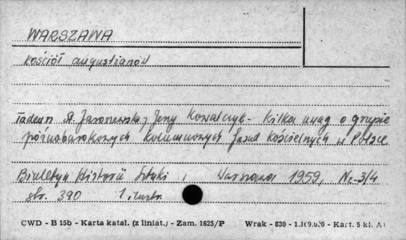 WARSZAWA
kościół augustianów
Tadeusz S. Jaroszewski, Jerzy Kowalczyk - Kilka uwag o grupie
późnobarokowych kolumnowych fasad kościelnych w Polsce
Biuletyn Historii Sztuki, Warszawa 1959, Nr 3/4
str. 390 1 ilustr.
CWD - B 15b - Karta katal. (z liniat.) - Zam. 1625/P Wrak - 830 - Kart. 5 kl. A